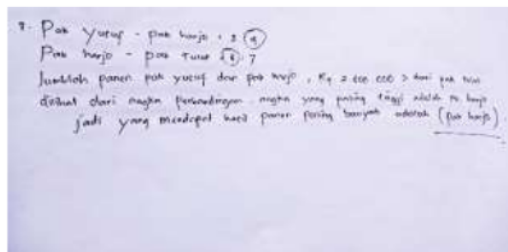 7. Pak Yusuf - pak harjo : 3 9
Pak harjo - pak Tulus 8 : 7
Jumblah panen pak yusuf dan pak harjo, Rp 2.400.000 > dari pak
dilihat dari angka perbandingan angka yang paling tinggi adalah pak harjo
jadi yang mendapat hasil panen paling banyak adalah (pak harjo)